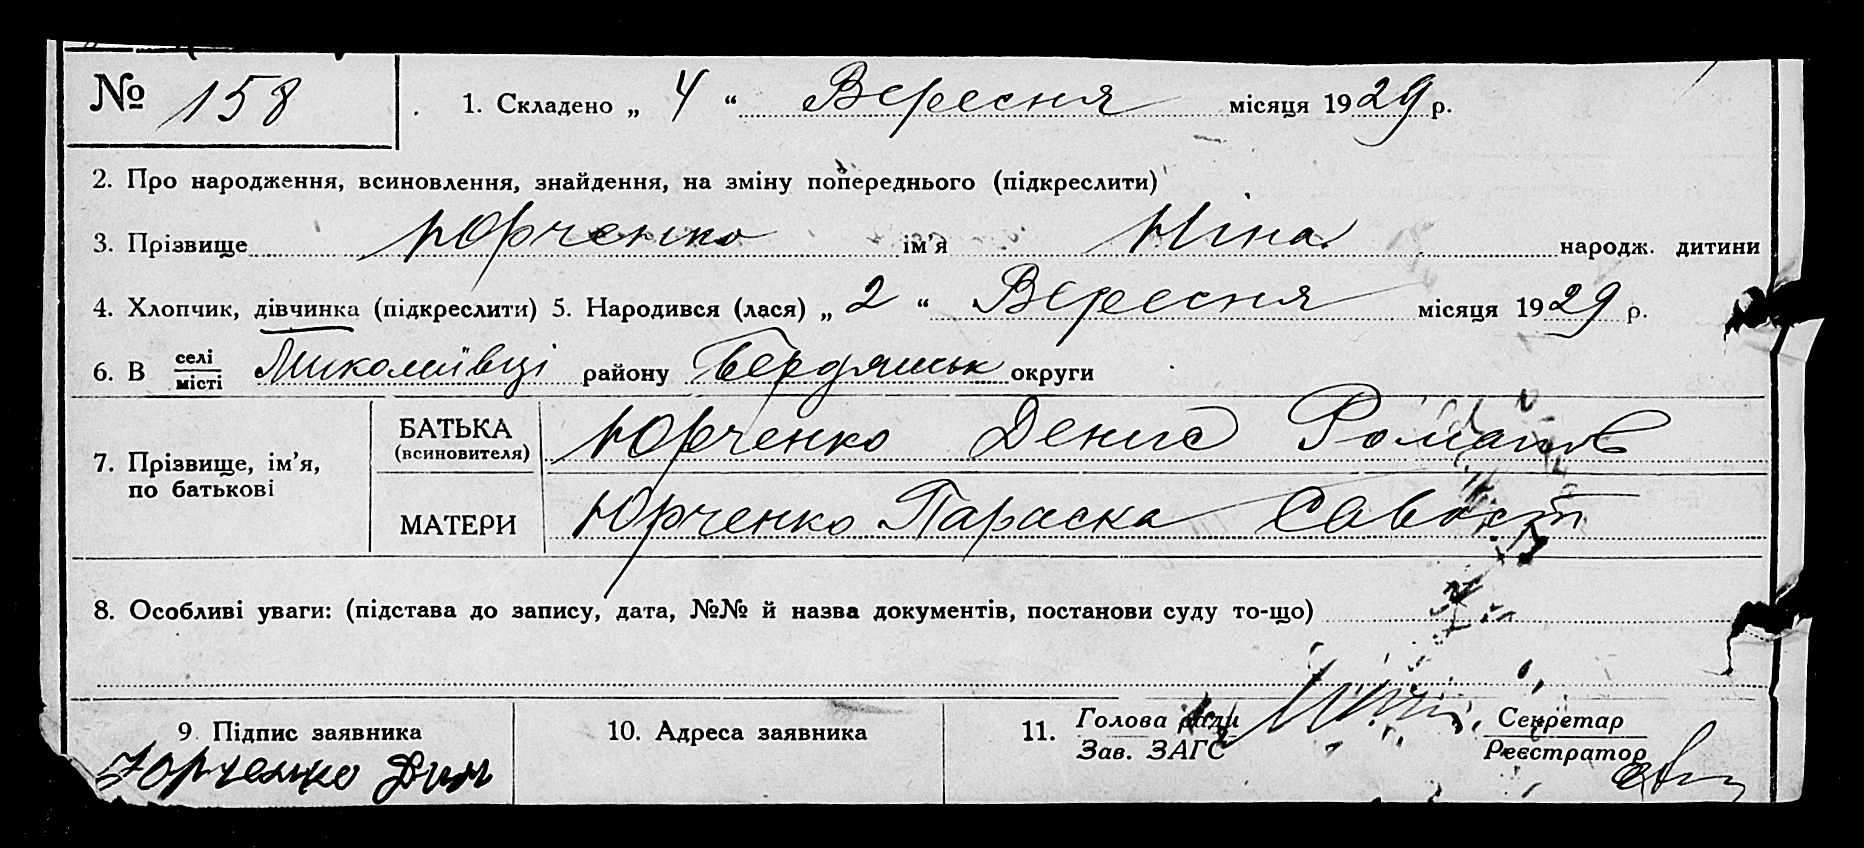 № 158
1. Складено „ 4 “ Вересня місяця 1929 р.
2. Про народження, всиновлення, знайдення, на зміну попереднього (підкреслити)
3. Прізвище Юрченко ім'я Ніна народж. дитини
4. Хлопчик, дівчинка (підкреслити) 5. Народився (лася) „ 2 “ Вересня місяця 1929 р.
6. В селі місті Миколаївці району Бердянськ округи
7. Прізвище, ім'я, по батькові
БАТЬКА (всиновителя) Юрченко Денис Романов
МАТЕРИ Юрченко Параска Савост
8. Особливі уваги: (підстава до запису, дата, №№ й назва документів, постанови суду то-що)
9 Підпис заявника
Юрченко
10. Адреса заявника
11. Голова ради Зав. ЗАГС
Секретар Реєстратор